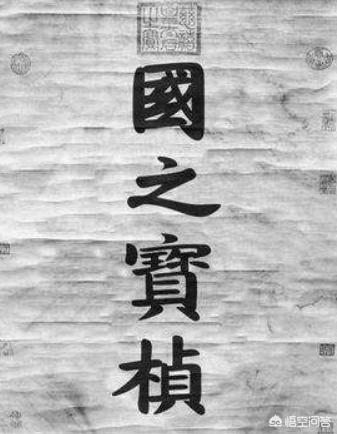 國之寶楨
悟空问答